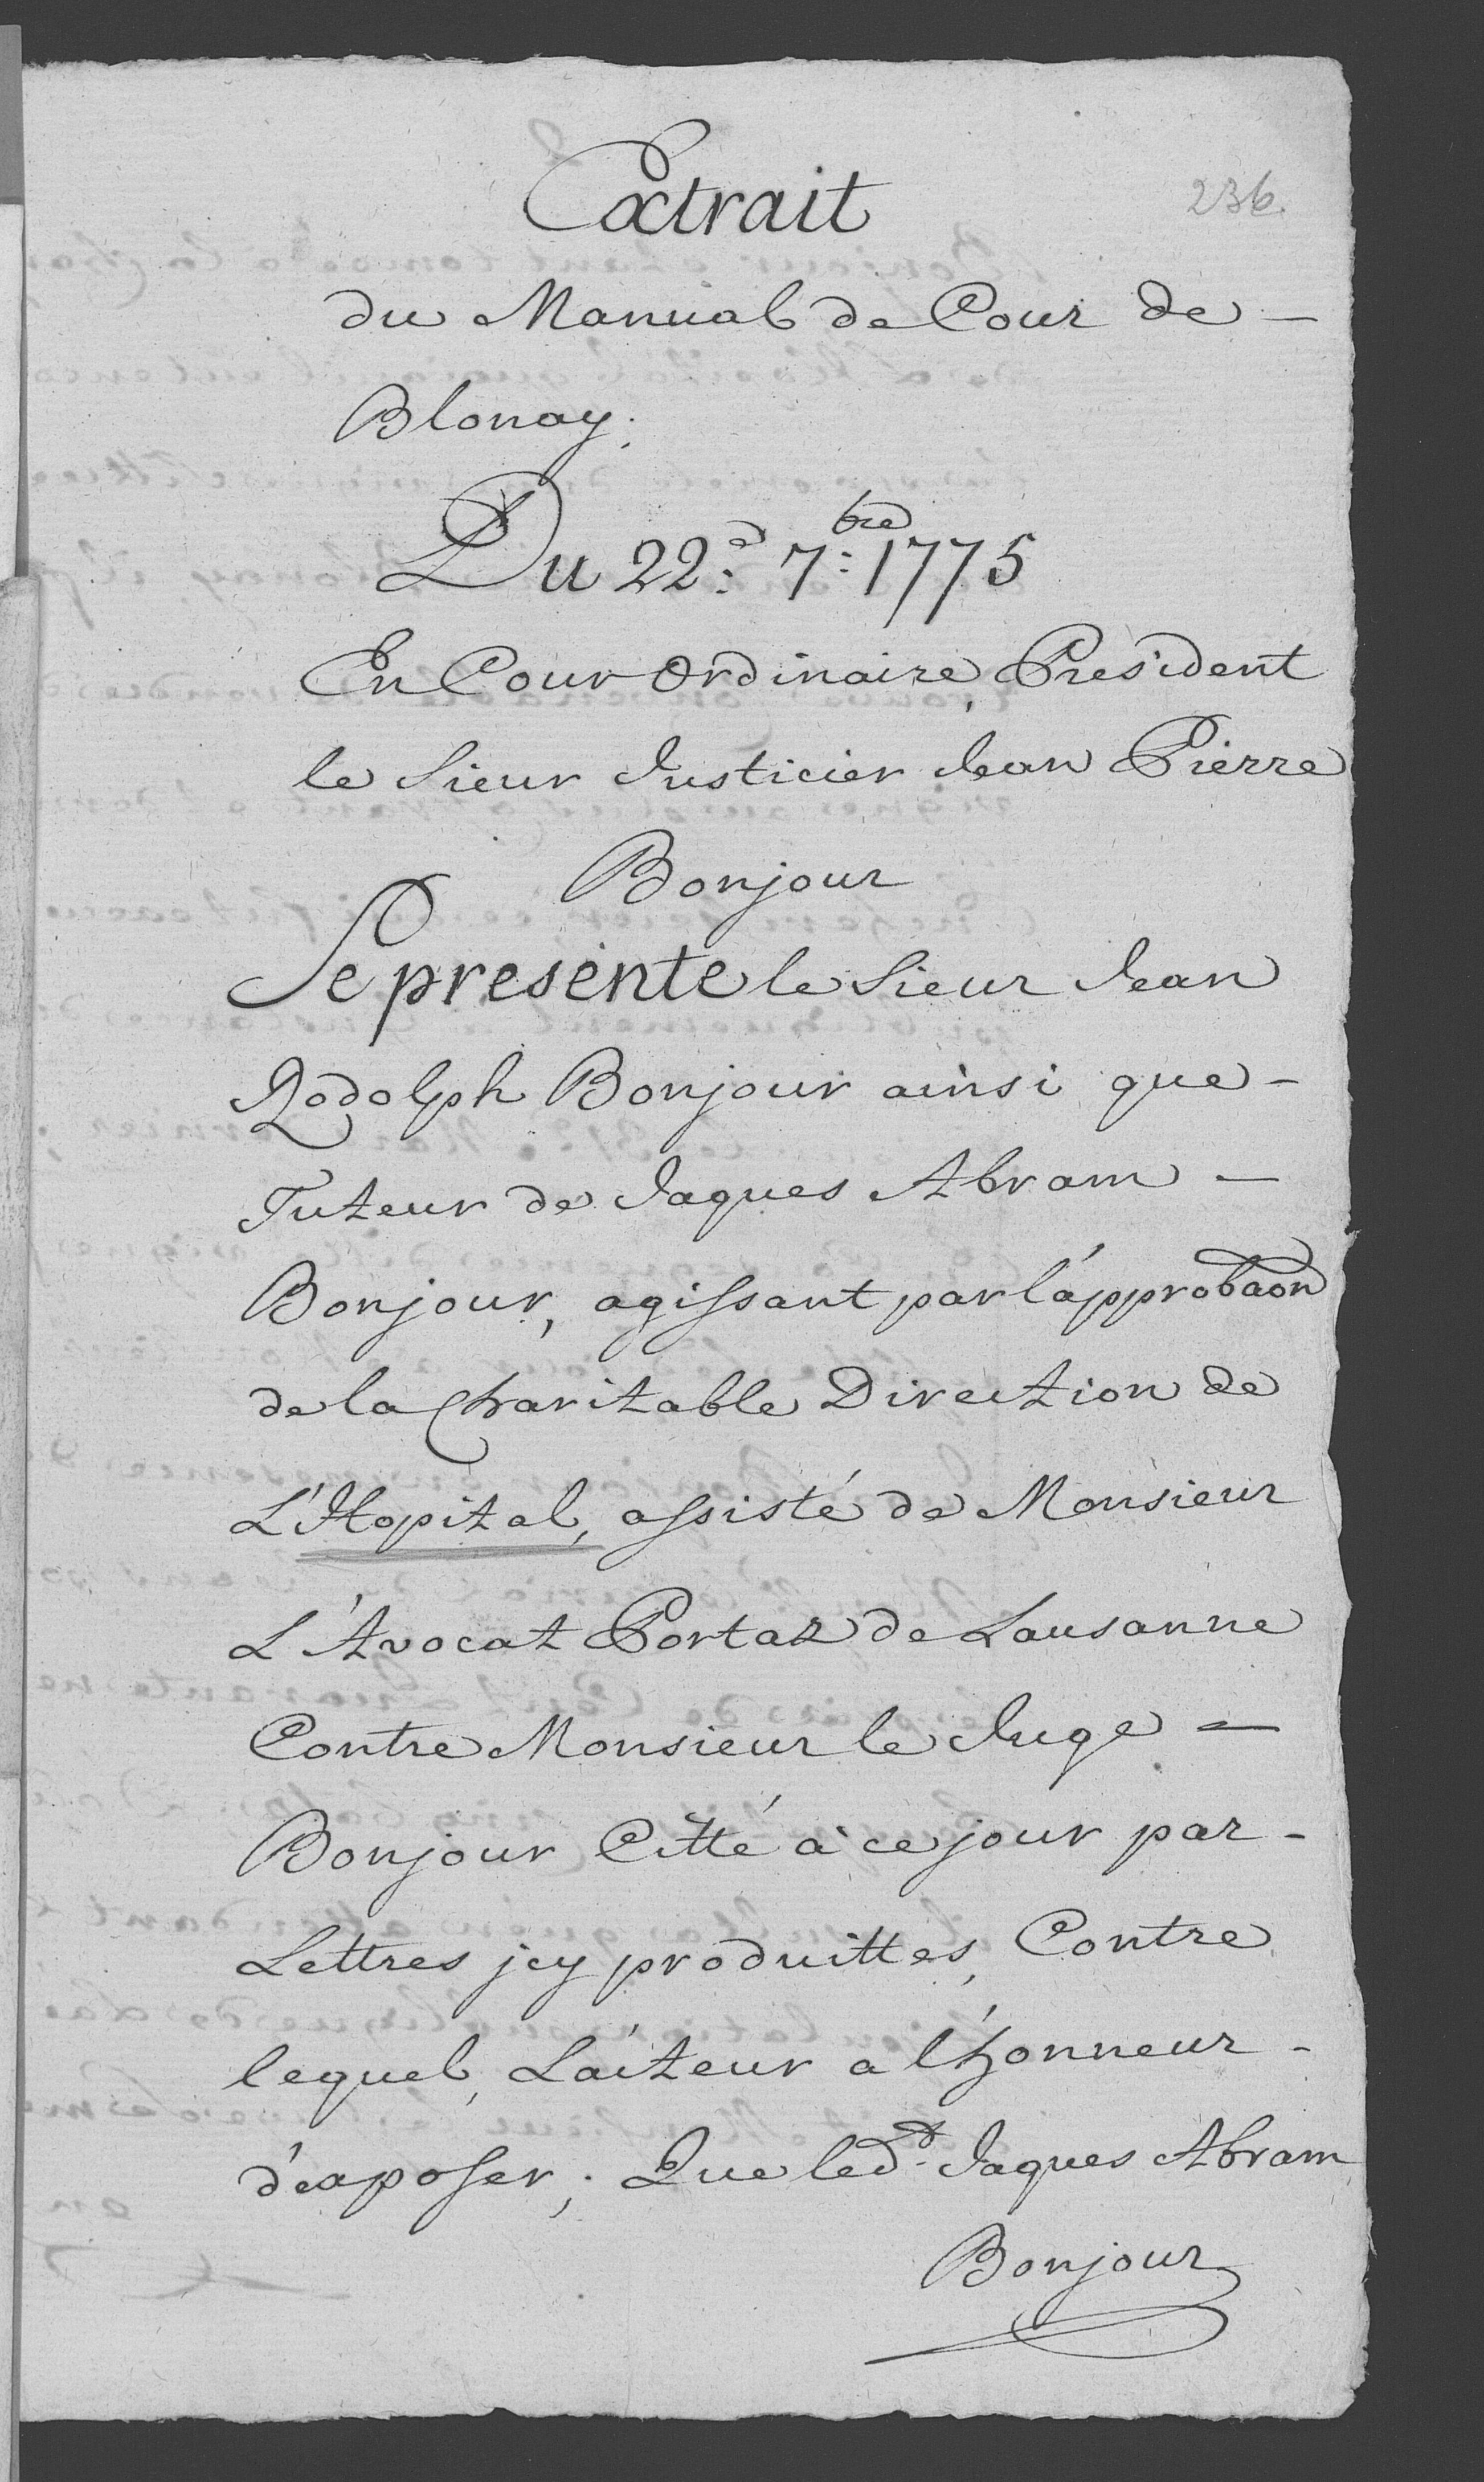 236.
Extrait
du Manual de Cour de -
Blonay.
Du 22:e 7:bre 1775
En Cour Ordinaire, President
le Sieur Justicier Jean Pierre
Bonjour
Se presente le Sieur Jean
Rodolph Bonjour ainsi que -
Tuteur de Jaques Abram -
Bonjour, agissant par l'approbaõn
de la Charitable Direction de
L'Hopital, assisté de Monsieur
L'Avocat Portaz de Lausanne
Contre Monsieur le Juge -
Bonjour Citté à ce jour par -
Lettres jcy produittes, Contre
lequel, L'acteur a l'honneur -
d'exposer; Que led:t Jaques Abram
Bonjour